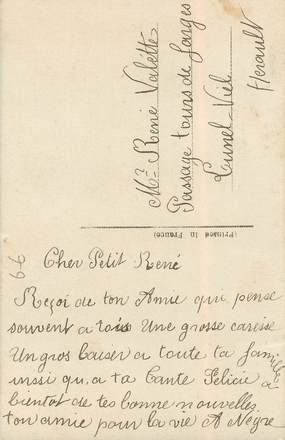 Mr René Valette
Passage tours de farges
Lunel-Viel
Herault
(Printed in France)
Cher Petit René
Reçoi de ton Amie qui pense
souvent a tois Une grosse caresse
Un gros baiser a toute ta famille
inssi qu, a ta tante Félicie a
bientot de tes bonne nouvelles
ton amie pour la vie A Nègre